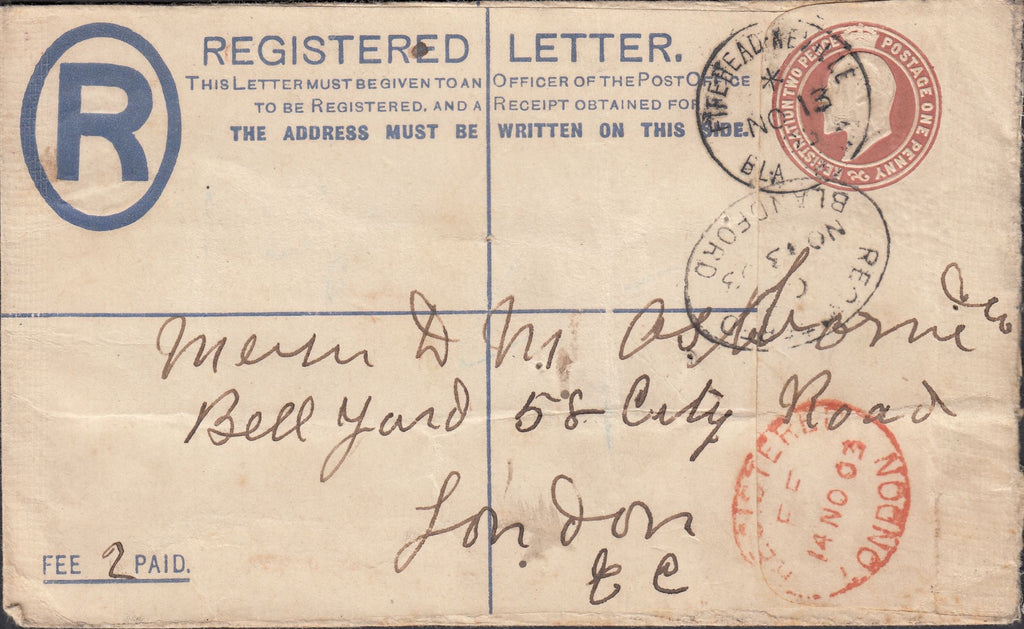 R
REGISTERED LETTER.
THIS LETTER MUST BE GIVEN TO AN OFFICER OF THE POST OFFICE
TO BE REGISTERED, AND A RECEIPT OBTAINED FOR
THE ADDRESS MUST BE WRITTEN ON THIS SIDE.
POSTAGE ONE PENNY & REGISTRATION TWO PENCE
NO 13
BLANDFORD
NO 13
03
Messrs D M Osborne & Co
Bell Yard 58 City Road
London
E C
FEE 2 PAID.
REGISTERED LONDON
14 NO 03